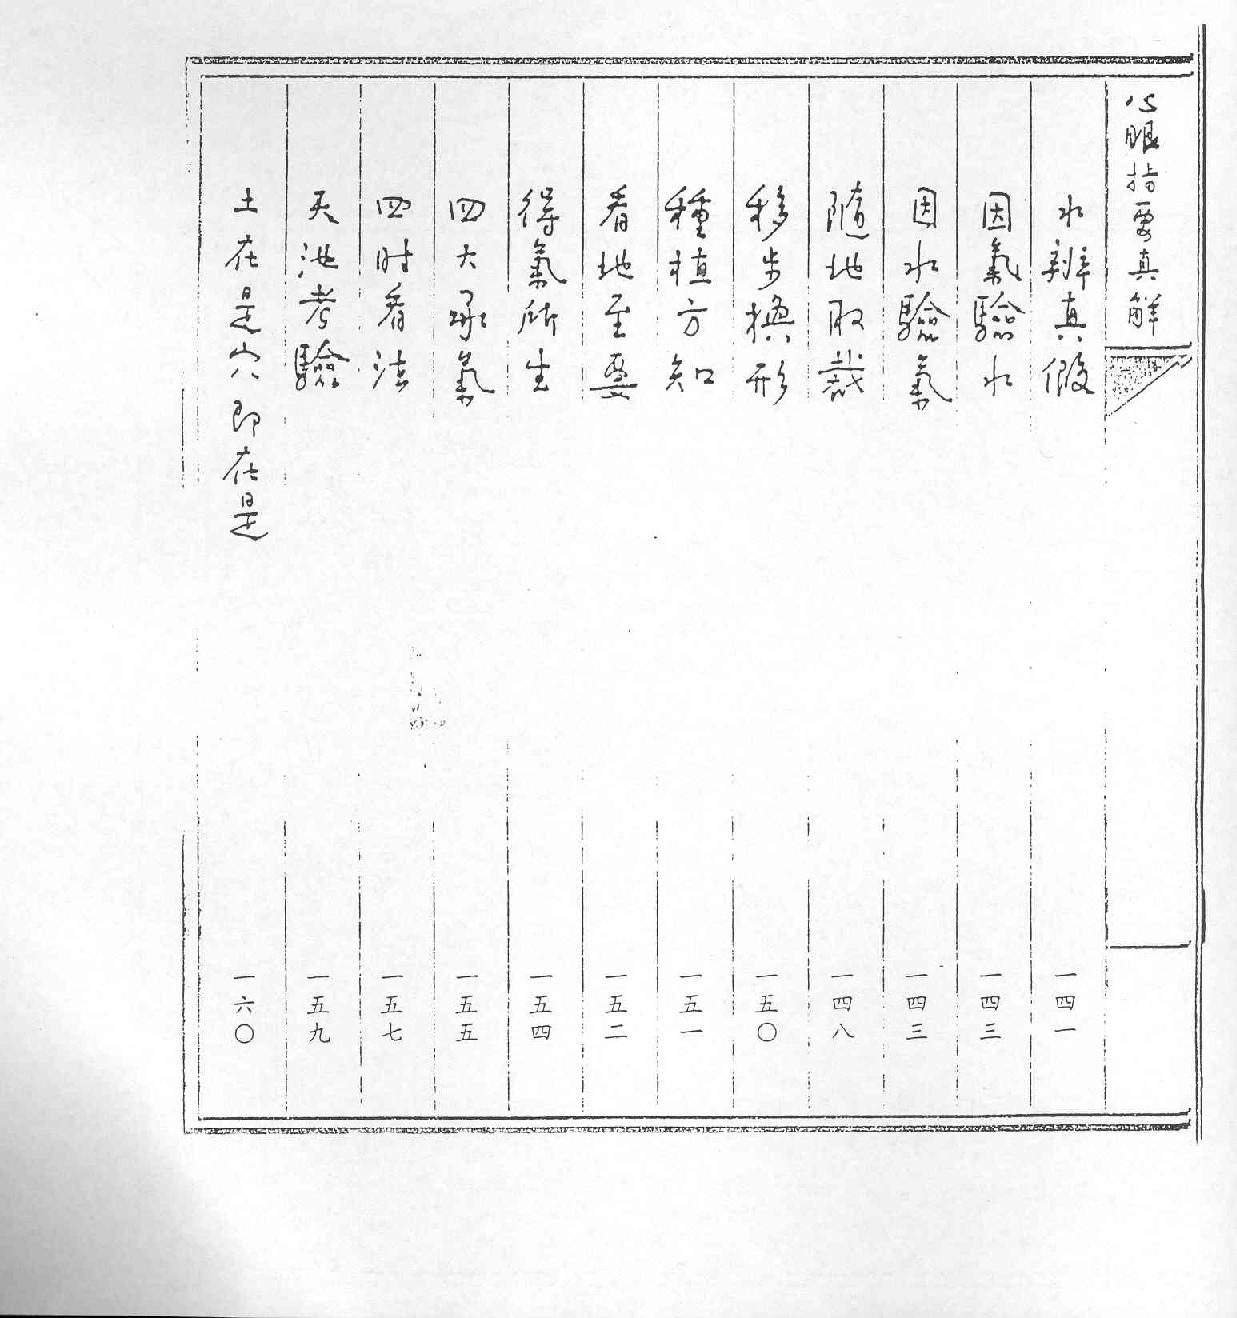 心眼指要真解
水辨真假 一四一
因氣驗水 一四三
因水驗氣 一四三
隨地取裁 一四八
移步換形 一五〇
種植方知 一五一
看地至要 一五二
得氣所生 一五四
四大承氣 一五五
四时看法 一五七
天池考驗 一五九
土在是穴即在是 一六〇